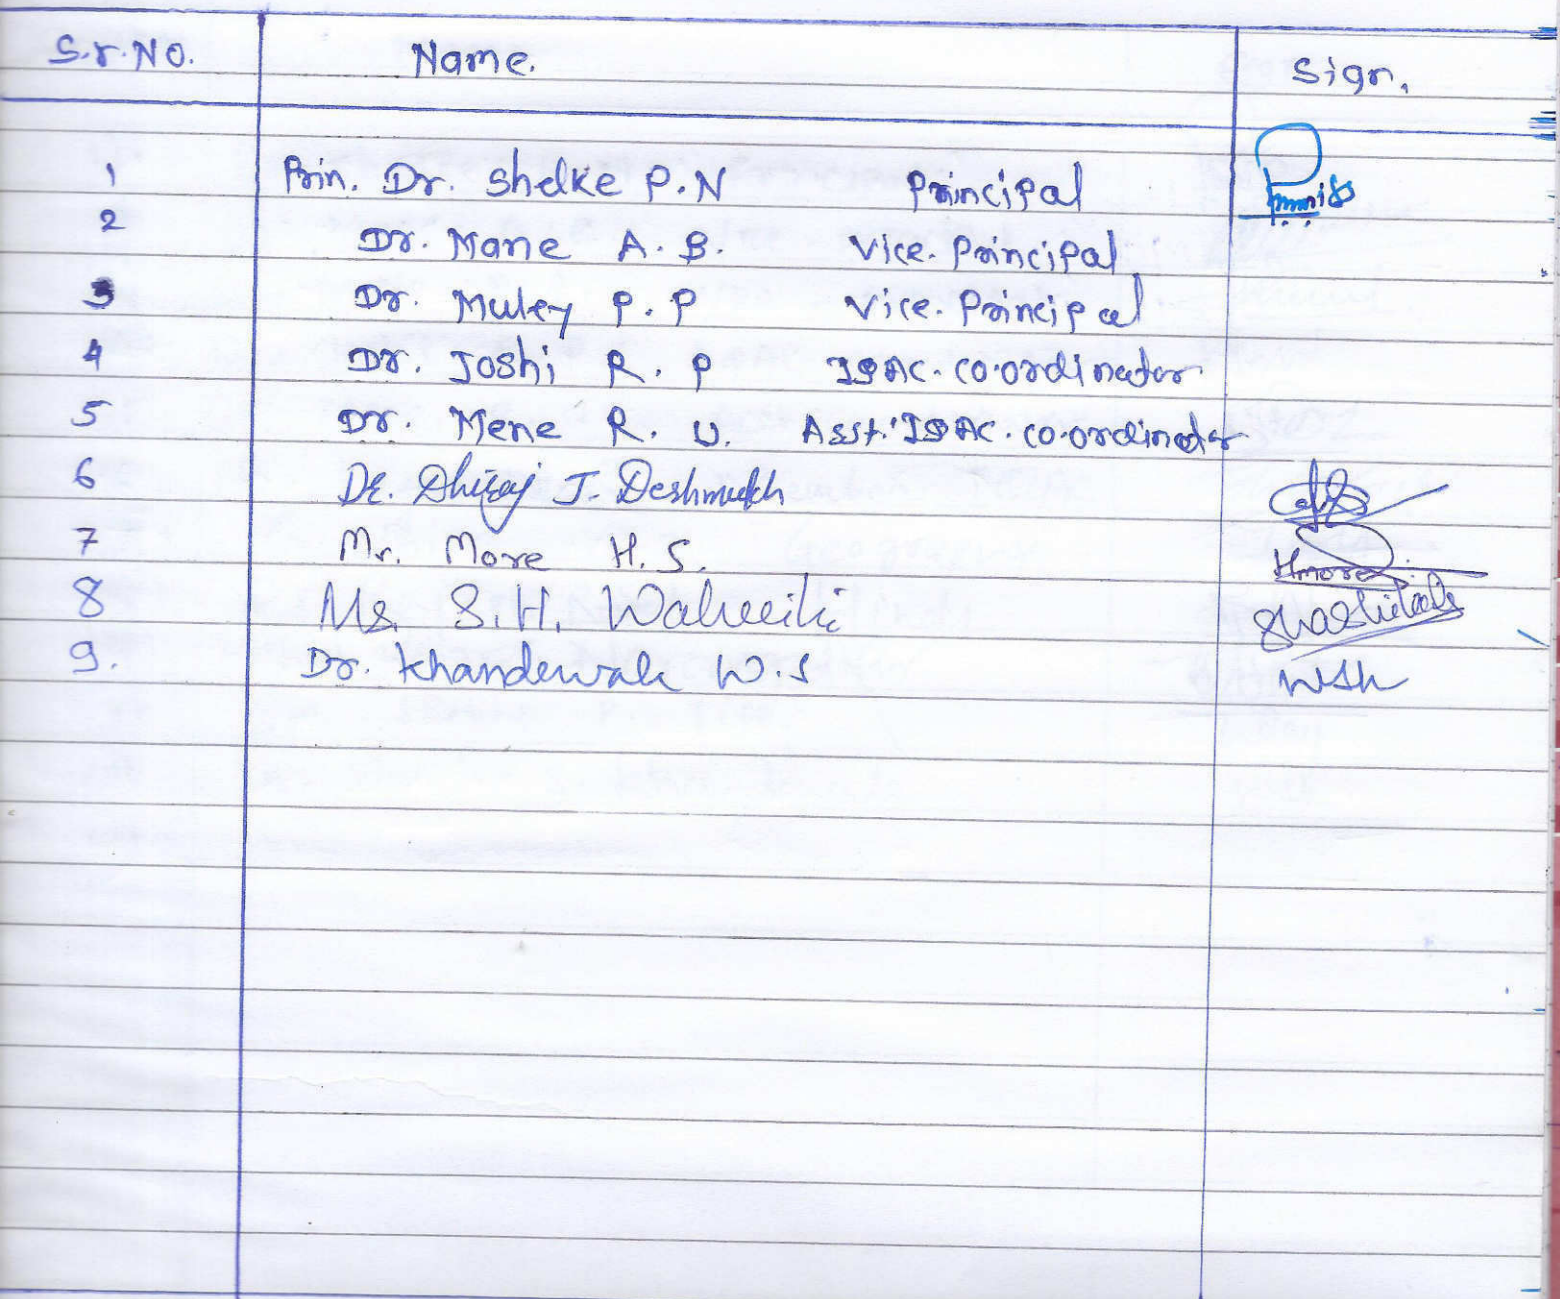 S.r.No. Name. Sign.
1 Prin. Dr. Shelke P.N Principal
2 Dr. Mane A.B. Vice. Principal
3 Dr. Muley P.P Vice. Principal
4 Dr. Joshi R.P IQAC. Co.ordinator
5 Dr. Mene R.U. Asst. IQAC. Co.ordinator
6 Dr. Dhiraj J. Deshmukh
7 Mr. More H.S. Hmore
8 Ms. S.H.
9. Dr. Khandewale W.S WSK